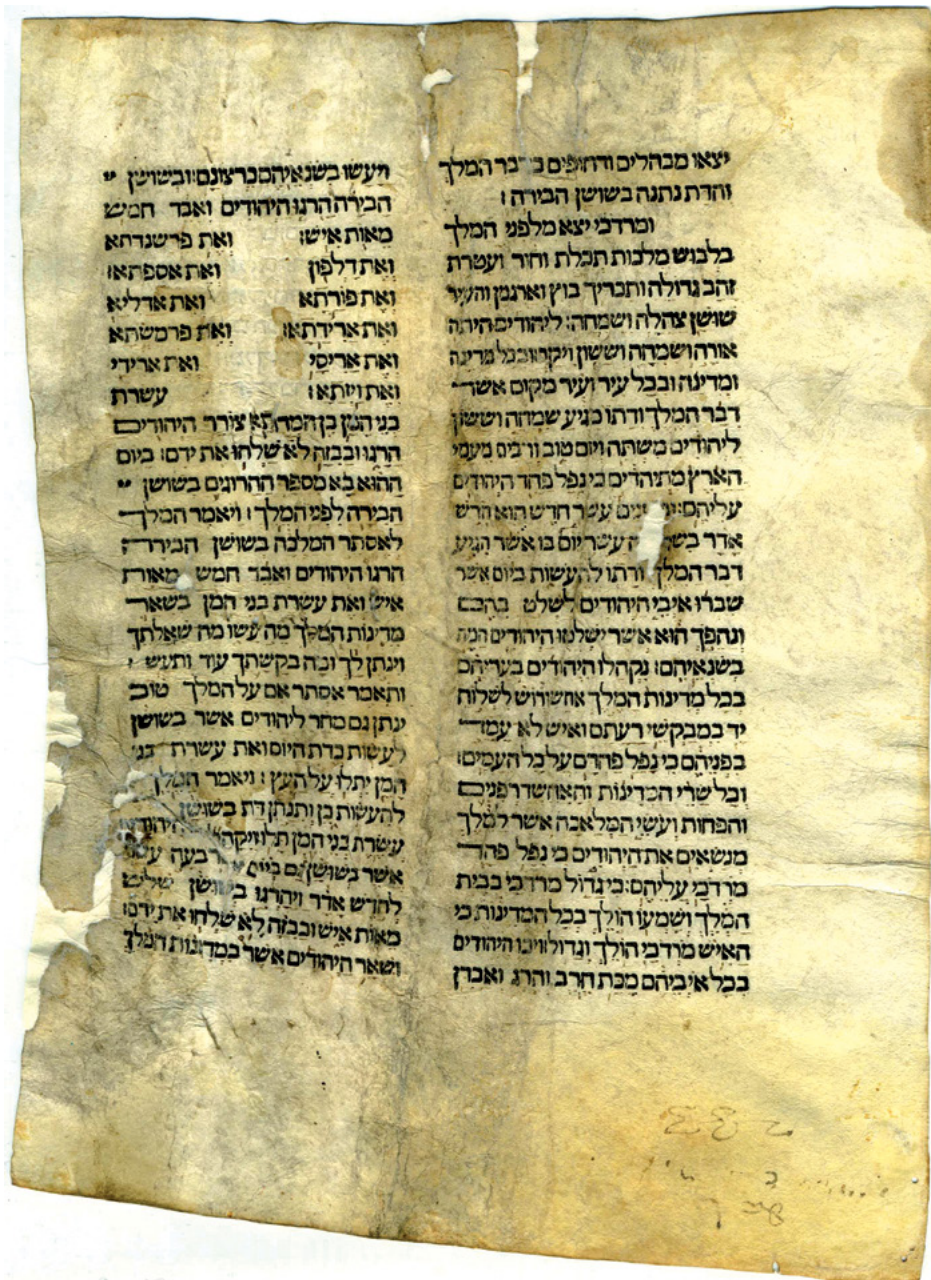 יצאו מבהלים ודחופים בדבר המלך
והדת נתנה בשושן הבירה׃
ומרדכי יצא מלפני המלך
בלבוש מלכות תכלת וחור ועטרת
זהב גדולה ותכריך בוץ וארגמן והעיר
שושן צהלה ושמחה׃ ליהודים היתה
אורה ושמחה וששון ויקר׃ ובכל מדינה
ומדינה ובכל עיר ועיר מקום אשר
דבר המלך ודתו מגיע שמחה וששון
ליהודים משתה ויום טוב ורבים מעמי
הארץ מתיהדים כי נפל פחד היהודים
עליהם׃ עשר חדש הוא חדש
אדר עשר יום בו אשר הגיע
דבר המלך ודתו להעשות ביום אשר
שברו איבי היהודים לשלט בהם
ונהפך הוא אשר ישלטו היהודים המה
בשנאיהם׃ נקהלו היהודים בעריהם
בכל מדינות המלך אחשורוש לשלוח
יד במבקשי רעתם ואיש לא עמד
בפניהם כי נפל פחדם על כל העמים׃
וכל שרי המדינות והאחשדרפנים
והפחות ועשי המלאכה אשר למלך
מנשאים את היהודים כי נפל פחד
מרדכי עליהם׃ כי גדול מרדכי בבית
המלך ושמעו הולך בכל המדינות כי
האיש מרדכי הולך וגדול׃ ויכו היהודים
בכל איביהם מכת חרב והרג ואבדן
ויעשו בשנאיהם כרצונם׃ ובשושן
הבירה הרגו היהודים ואבד חמש
מאות איש׃ ואת פרשנדתא
ואת דלפון ואת אספתא׃
ואת פורתא ואת אדליא
ואת ארידתא׃ ואת פרמשתא
ואת אריסי ואת ארידי
ואת ויזתא׃ עשרת
בני המן בן המדתא צורר היהודים
הרגו ובבזה לא שלחו את ידם׃ ביום
ההוא בא מספר ההרוגים בשושן
הבירה לפני המלך׃ ויאמר המלך
לאסתר המלכה בשושן הבירה
הרגו היהודים ואבד חמש מאות
איש ואת עשרת בני המן בשאר
מדינות המלך מה עשו מה שאלתך
וינתן לך ומה בקשתך עוד ותעש
ותאמר אסתר אם על המלך טוב
ינתן גם מחר ליהודים אשר בשושן
לעשות כדת היום ואת עשרת בני
המן יתלו על העץ׃ ויאמר המלך
להעשות כן ותנתן דת בשושן
עשרת בני המן תלו׃ ויקהלו
אשר בשושן גם ביום
לחדש אדר ויהרגו בשושן שלש
מאות איש ובבזה לא שלחו את ידם׃
ושאר היהודים אשר במדינות המלך